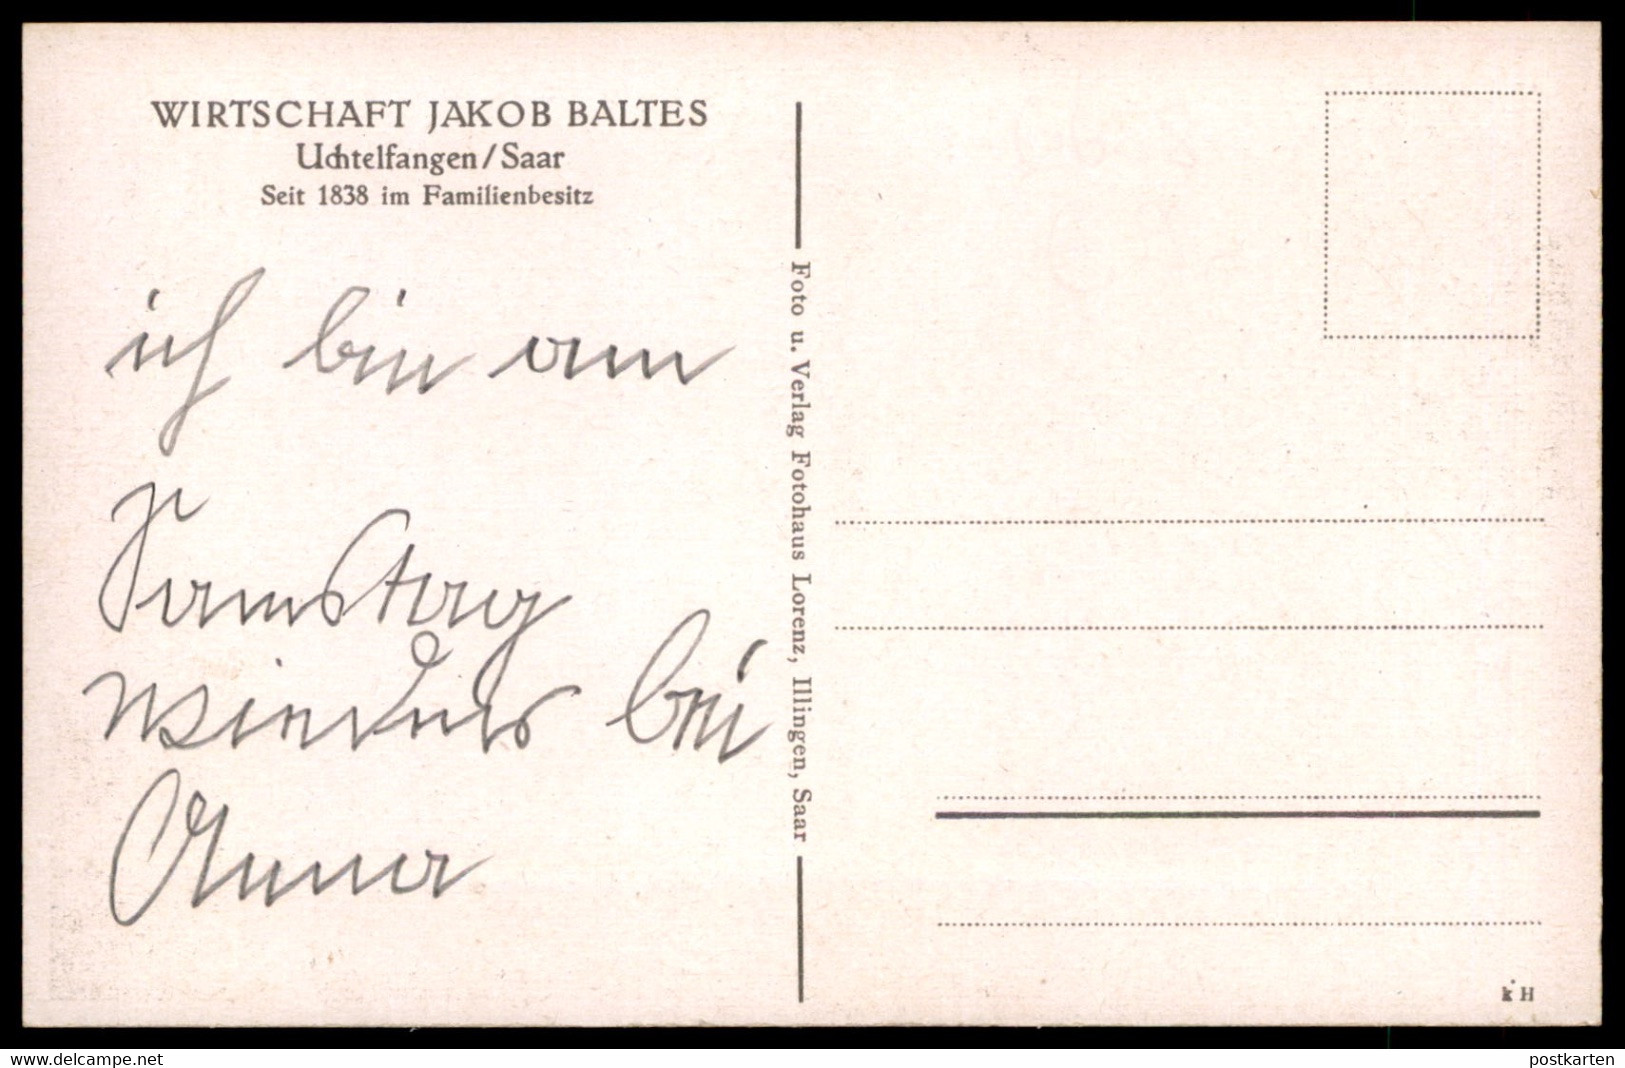 WIRTSCHAFT JAKOB BALTES
Uchtelfangen/Saar
Seit 1838 im Familienbesitz
ich bin am
Samstag
wieder bei
Anna
Foto u. Verlag Fotohaus Lorenz, Illingen, Saar
k H
www.delcampe.net
postkarten